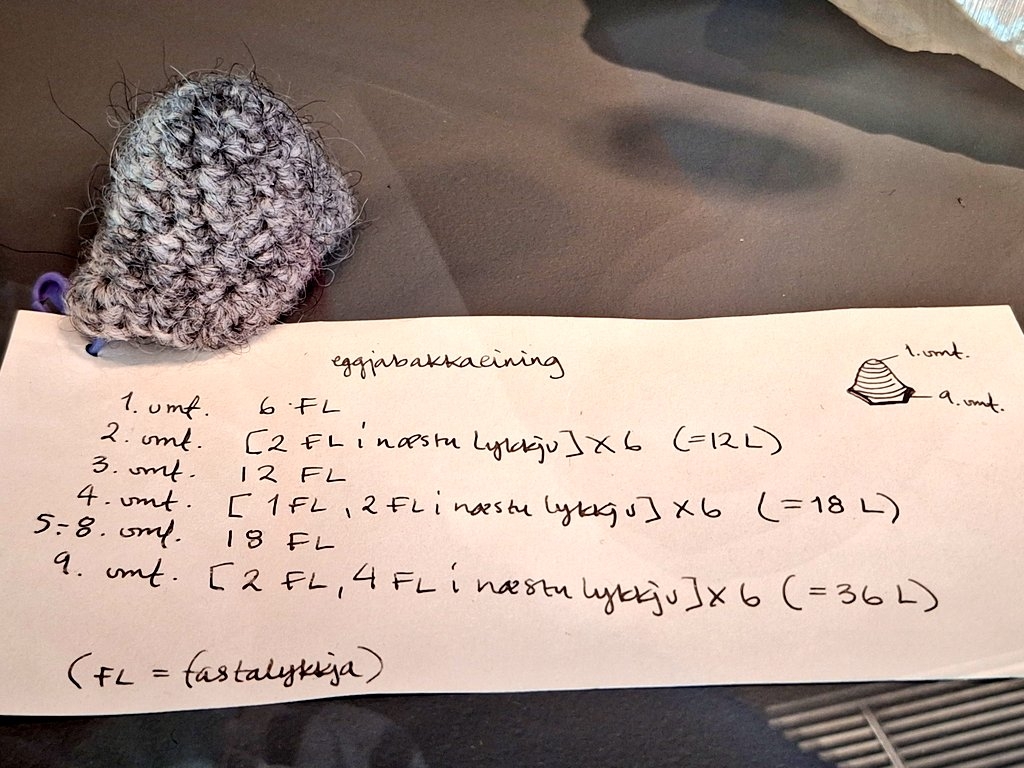 eggjabakkaeining
1. umf.
9. umf.
1. umf. 6 FL
2. umf. [2 FL í næstu lykkju] x 6 (=12 L)
3. umf. 12 FL
4. umf. [1 FL, 2 FL í næstu lykkju] x 6 (=18 L)
5.-8. umf. 18 FL
9. umf. [2 FL, 4 FL í næstu lykkju] x 6 (=36 L)
(FL = fastalykkja)